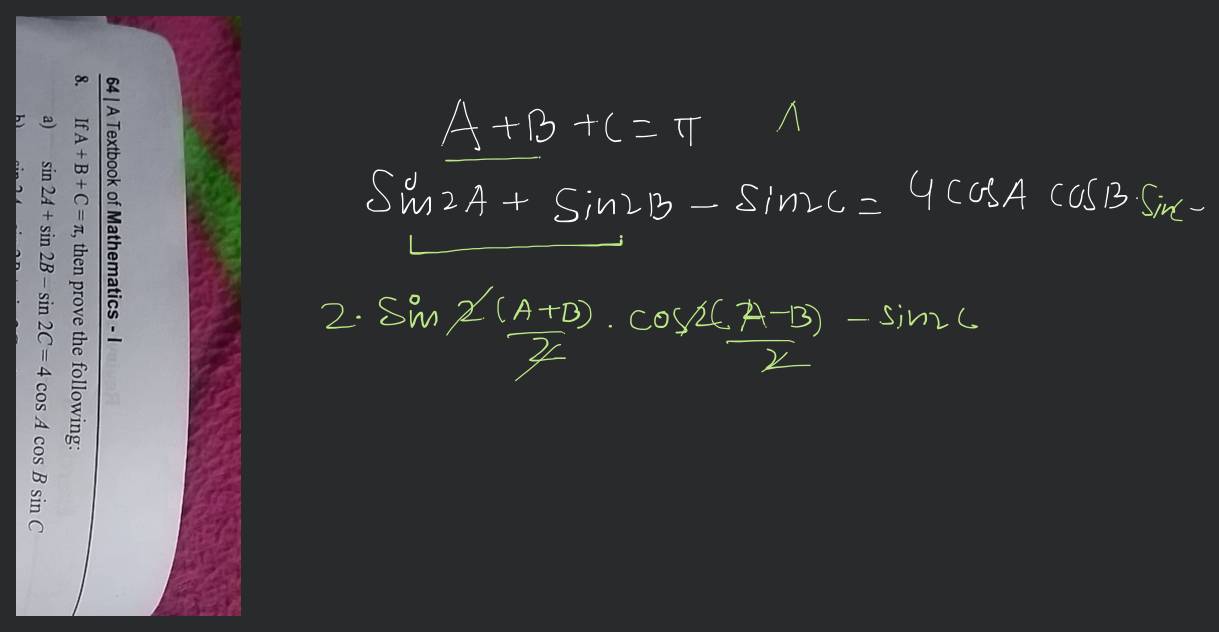 64 | A Textbook of Mathematics - I
8. If A + B + C = π, then prove the following:
a) sin 2A + sin 2B – sin 2C = 4 cos A cos B sin C
b)
A + B + C = π
Sin2A + Sin2B – Sin2C = 4 cosA cosB. Sinc
2. Sin 2(A+B)/2 . cos 2(A–B)/2 – Sin2C